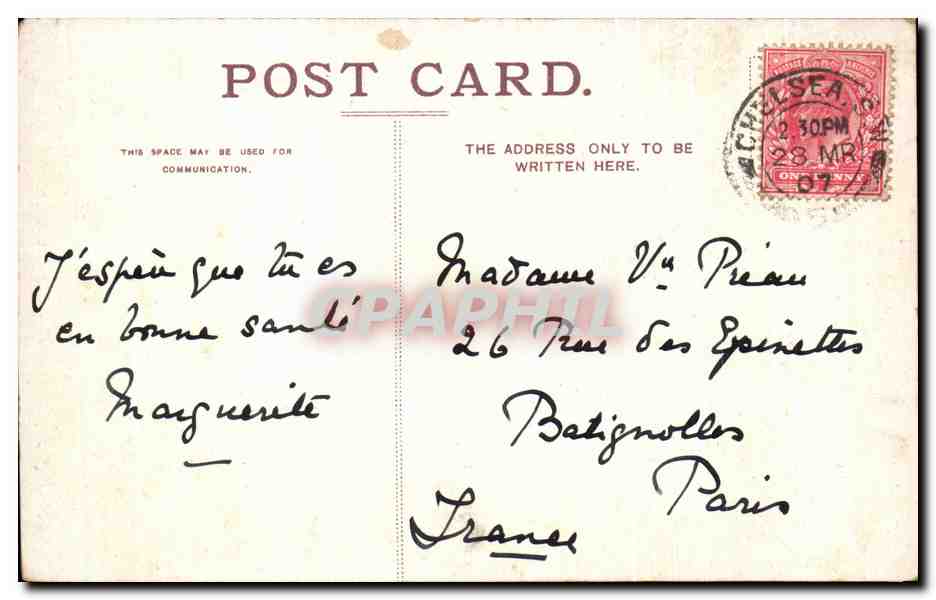 POST CARD.
THIS SPACE MAY BE USED FOR
COMMUNICATION.
THE ADDRESS ONLY TO BE
WRITTEN HERE.
CHELSEA. S.
2.30PM
28 MR
07
ONE PENNY
J'espère que tu es
en bonne santé
Marguerite
Madame Vve Préau
26 Rue des Epinettes
Batignolles
Paris
France
CPAPHIL